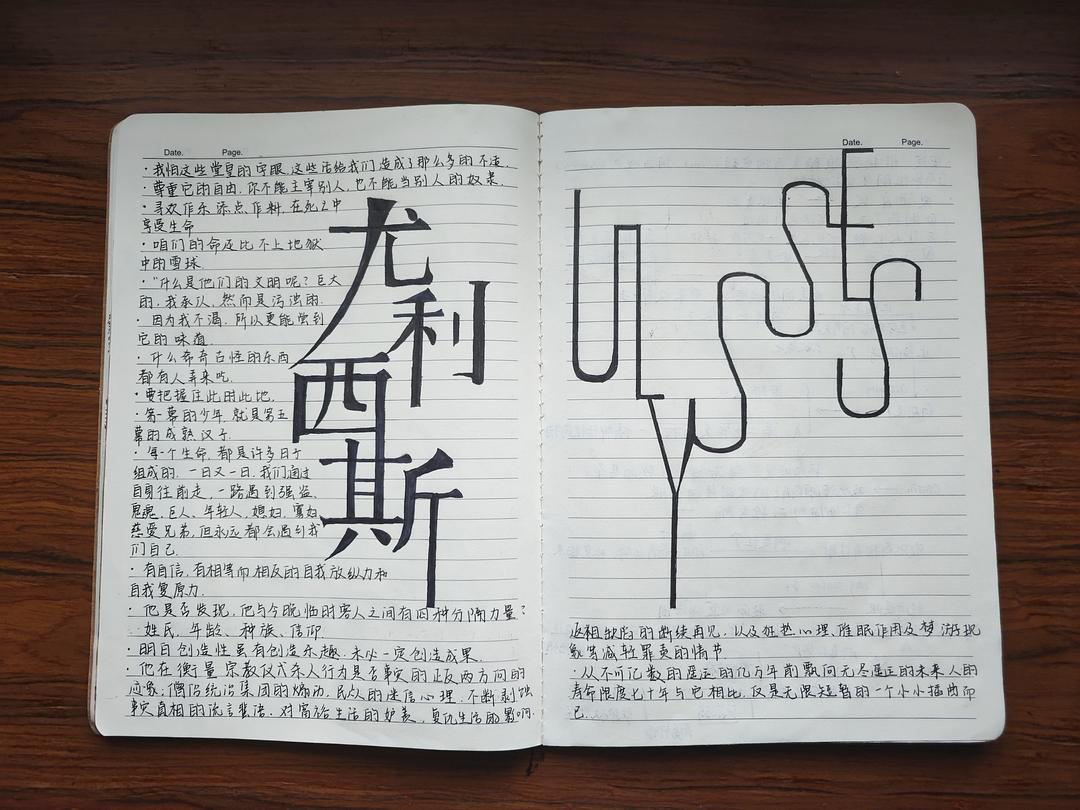 Date. Page.
·我怕这些堂皇的字眼，这些话给我们造成了那么多的不幸．
·尊重它的自由．你不能主宰别人，也不能当别人的奴隶．
·寻欢作乐 添点作料，在死之中
享受生命
·咱们的命还比不上地狱
中的雪球．
·“什么是他们的文明呢？巨大
的，我承认，然而是污浊的．
·因为我不渴，所以更能尝到
它的味道．
·什么奇奇古怪的东西
都有人弄来吃．
·要把握住此时此地．
·第一幕的少年，就是第五
幕的成熟汉子．
·每一个生命，都是许多日子
组成的．一日又一日．我们通过
自身往前走，一路遇到强盗、
鬼魂、巨人、年轻人、媳妇、寡妇、
慈爱兄弟，但永远都会遇到我
们自己．
·有自信，有相等而相反的自我放纵力和
自我复原力．
·他是否发现，他与今晚临时客人之间有四种分隔力量？
姓氏、年龄、种族、信仰．
·明日创造性虽有创造乐趣，未必一定创造成果．
·他在衡量宗教仪式杀人行为是否事实的正反两方面的
迹象：僧侣统治集团的煽动，民众的迷信心理，不断剥蚀
事实真相的流言蜚语，对富裕生活的妒羡，复仇生活的影响．
尤利西斯
Date. Page.
ULYSSES
返祖缺陷的断续再见，以及狂热心理、催眠作用及梦游现
象等减轻罪责的情节
·从不可亿数的遥远的亿万年前飘向无尽遥远的未来人的
寿命限度七十年与它相比，仅是无限短暂的一个小小插曲而
已．